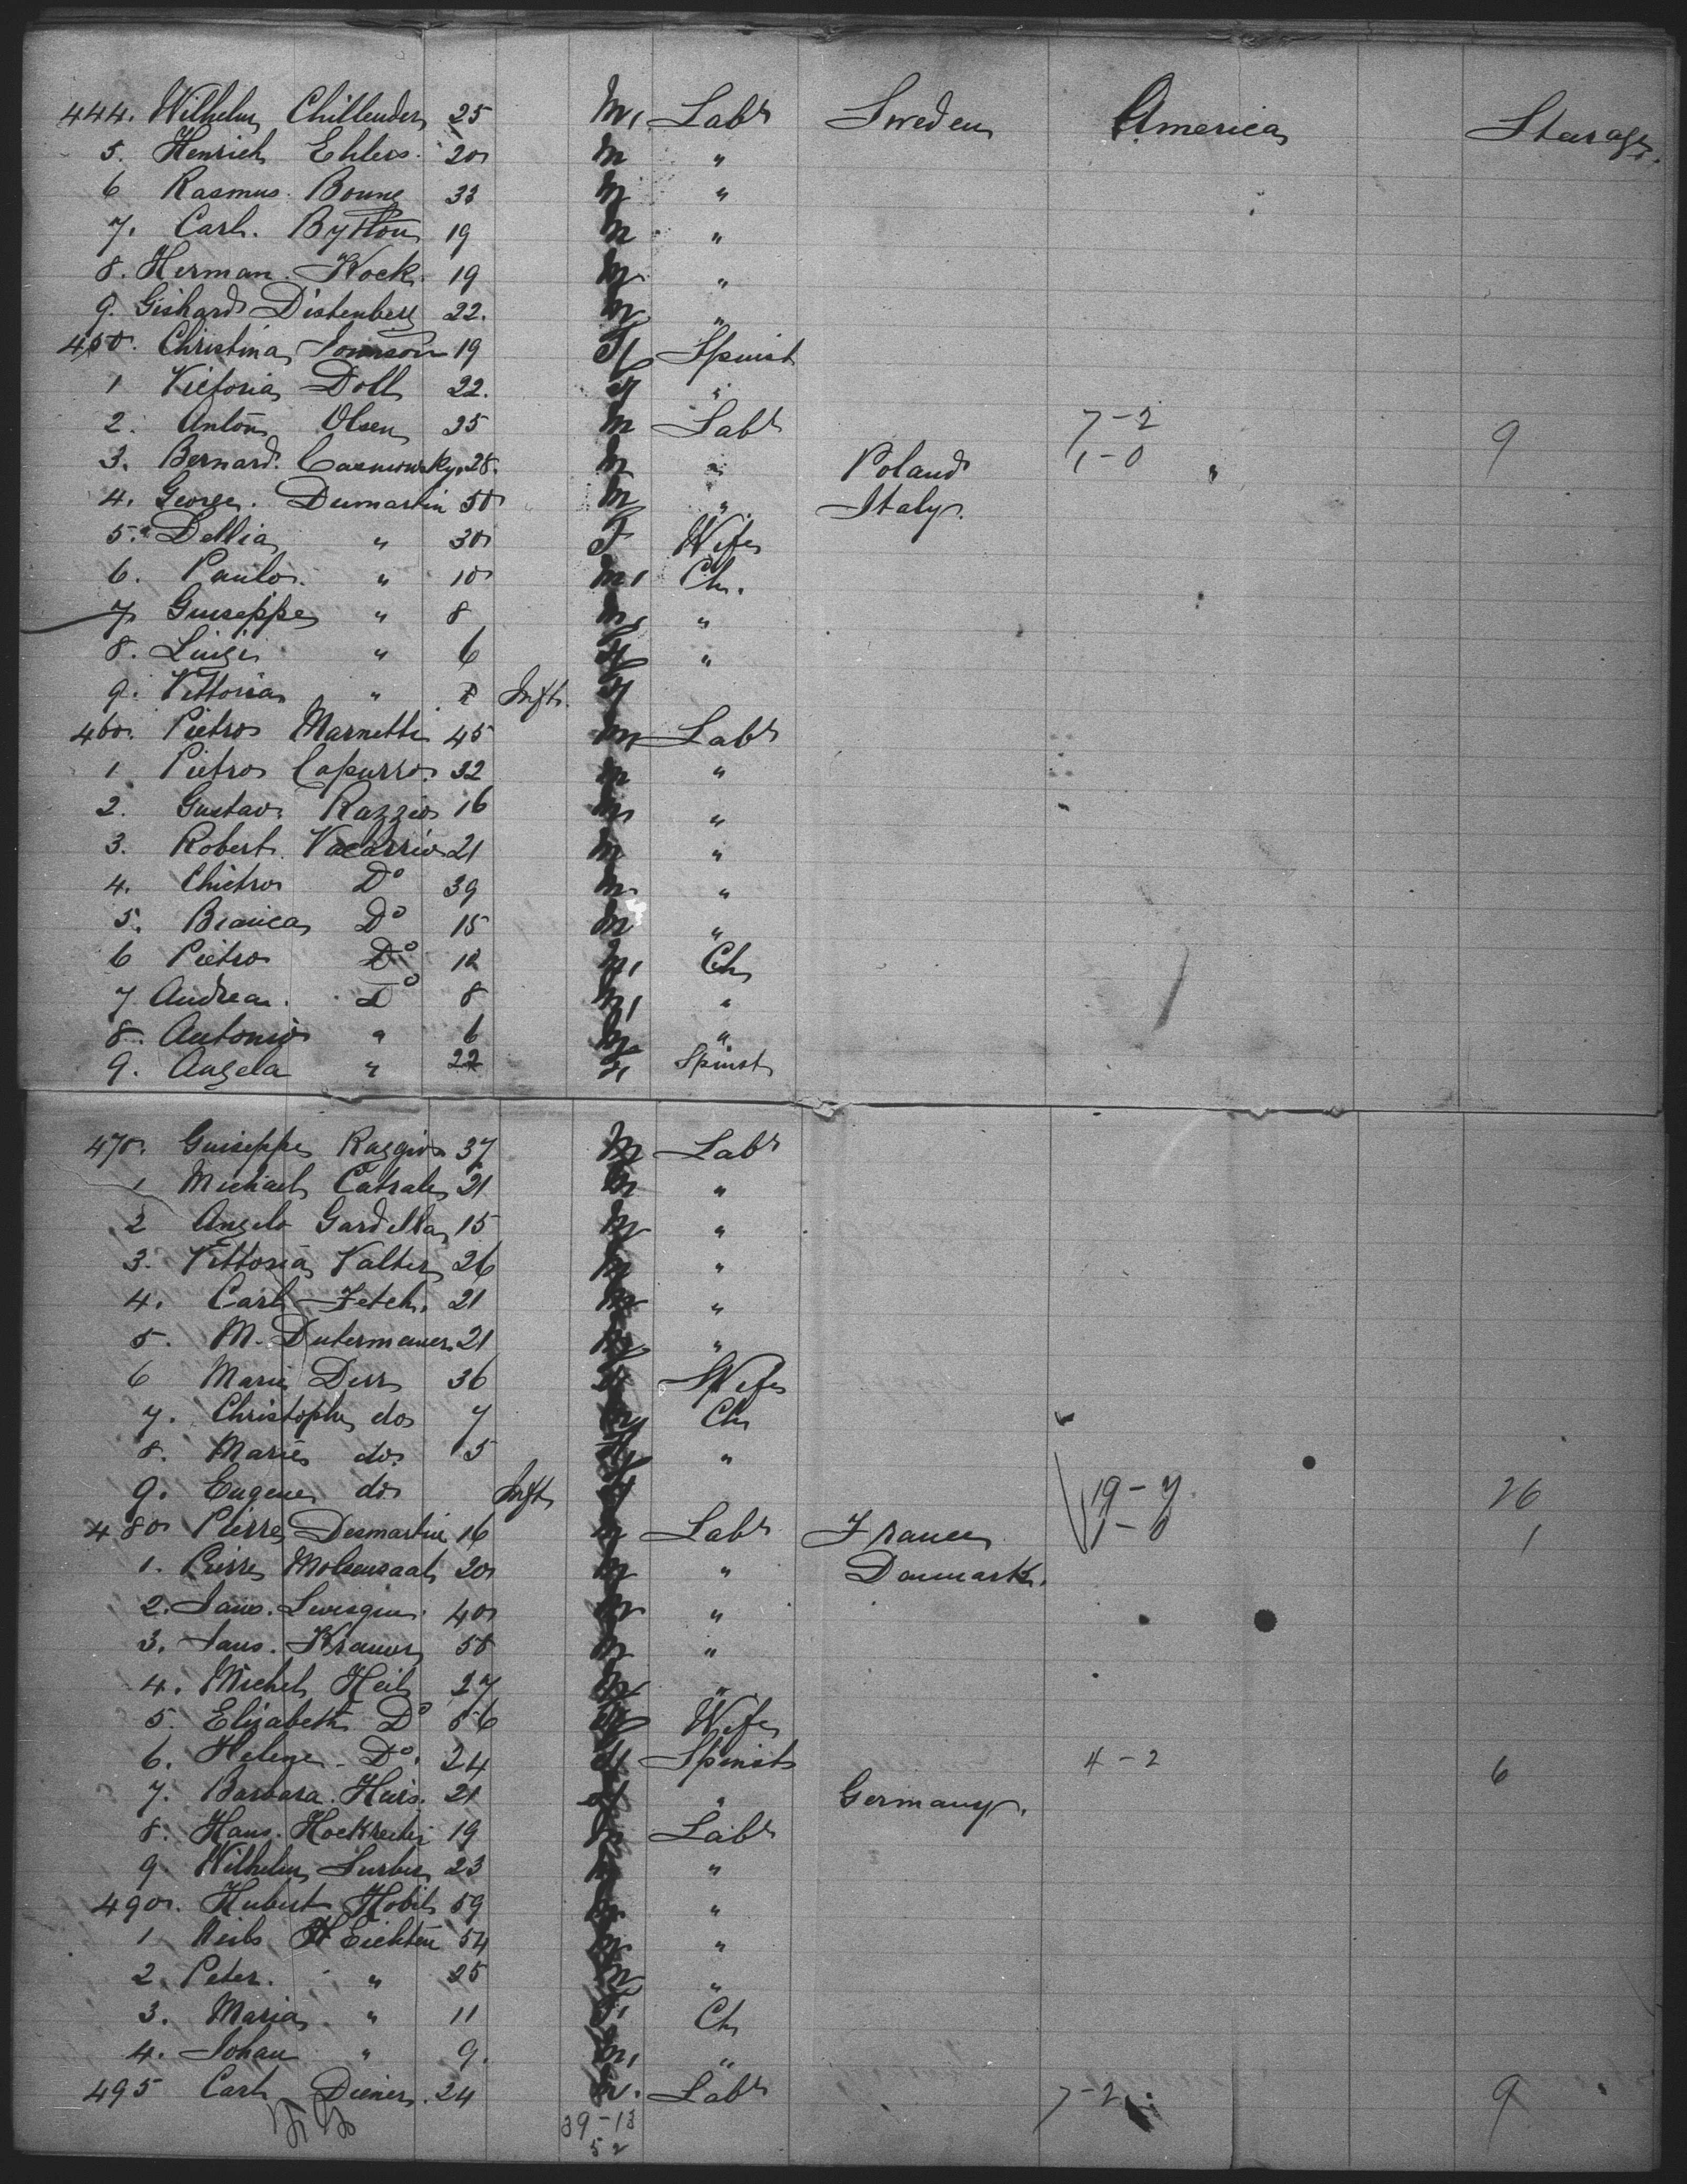 444. Wilhelm Chillender 25 M Labr Sweden America Steerage.
5. Henrich Ehlers. 20 M "
6 Rasmus Boune 33 M "
7. Carl. Bytton 19 M "
8. Herman. Kock. 19 M "
9. Gishard Distenberg 22. M "
450. Christina 19 F Spinst
1 Victoria Doll 22. F "
2. Anton Olsen 25 M Labr 7-2 9
3. Bernard. 28. M " Poland 1-0 "
4. George. Dumartin 50 M " Italy.
5. Dellia " 30 F Wife
6. Paulo. " 10 M Ch.
7 Guiseppe " 8 M "
8. Luigi " 6 F "
9. Vittoria " Inft. F
460. Pietro Marnetti 45 M Labr
1 Pietro Capurro. 32 M "
2. Gustavo Razzio 16 M "
3. Robert. Vacarrio 21 M "
4. Chietro Do 39 M "
5. Bianca Do 15 M "
6 Pietro Do 10 M Ch
7 Andrea. Do 8 M "
8. Antonio " 6 M "
9. Angela " 22 F Spinst
470. Guiseppe Raggio 37 M Labr
1 Michael Catrale 21 M "
2 Angelo Gardella 15 M "
3. Vittoria Valter 26 M "
4. Carl Fetch. 21 M "
5. M. Dutermauer 21 M "
6 Marie Derr 36 F Wife
7. Christophe do 7 M Ch
8. Marie do. 5 F "
9. Eugene do Inft F 19-7 26
480 Pierre Desmartin 16 M Labr France 1-0 1
1. Pierre 20 M " Danmark.
2. 40 M "
3. Kramer 50 M "
4. Michel Heil 27 M "
5. Elizabeth Do 56 F Wife
6. Helene Do. 24 F Spinst 4-2 6
7. Barbara. Heis. 21 F " Germany.
8. Hans. 19 M Labr
9. Wilhelm Surber 23 M "
490. Hubert Hobil 59 M "
1 Eichten 54 M "
2. Peter. " 25 M "
3. Maria " 11 F Ch
4. Johan " 9. M "
495 Carl Diener. 24 M. Labr 7-2 9
39-13
52